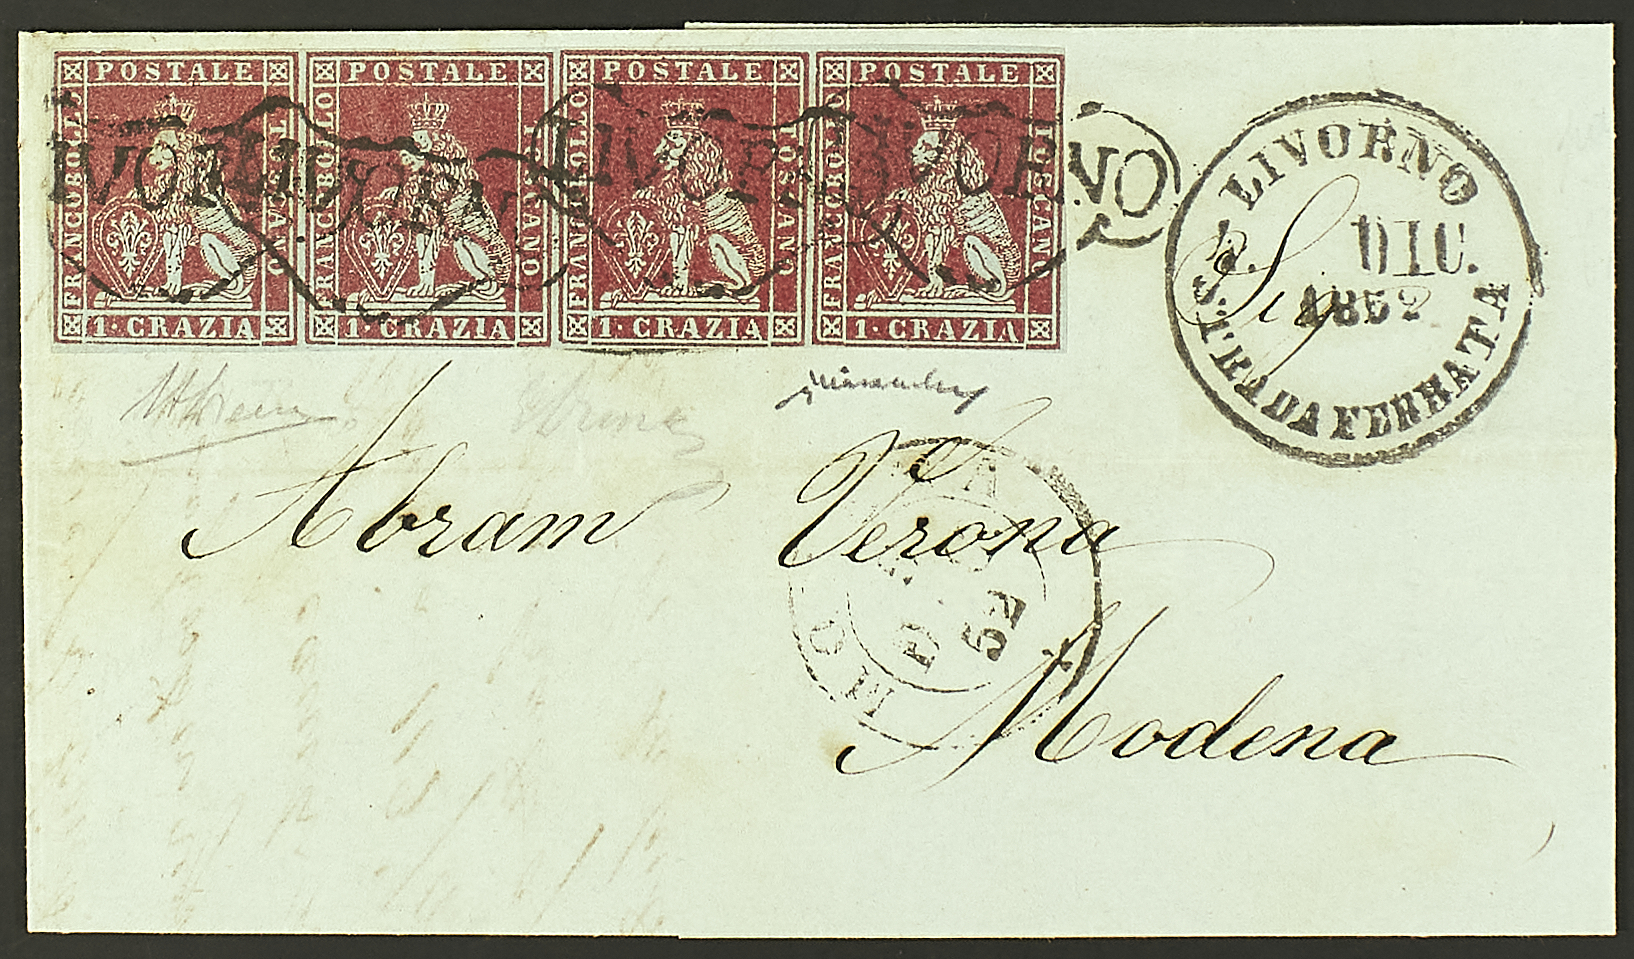 POSTALE POSTALE POSTALE POSTALE
FRANCOBOLLO TOSCANO FRANCOBOLLO TOSCANO FRANCOBOLLO TOSCANO FRANCOBOLLO TOSCANO
1·CRAZIA 1·CRAZIA 1·CRAZIA 1·CRAZIA
LIVORNO LIVORNO LIVORNO LIVORNO
LIVORNO
DIC.
1852
STRADA FERRATA
Sig
Abram Verona
MODENA
52
Modena